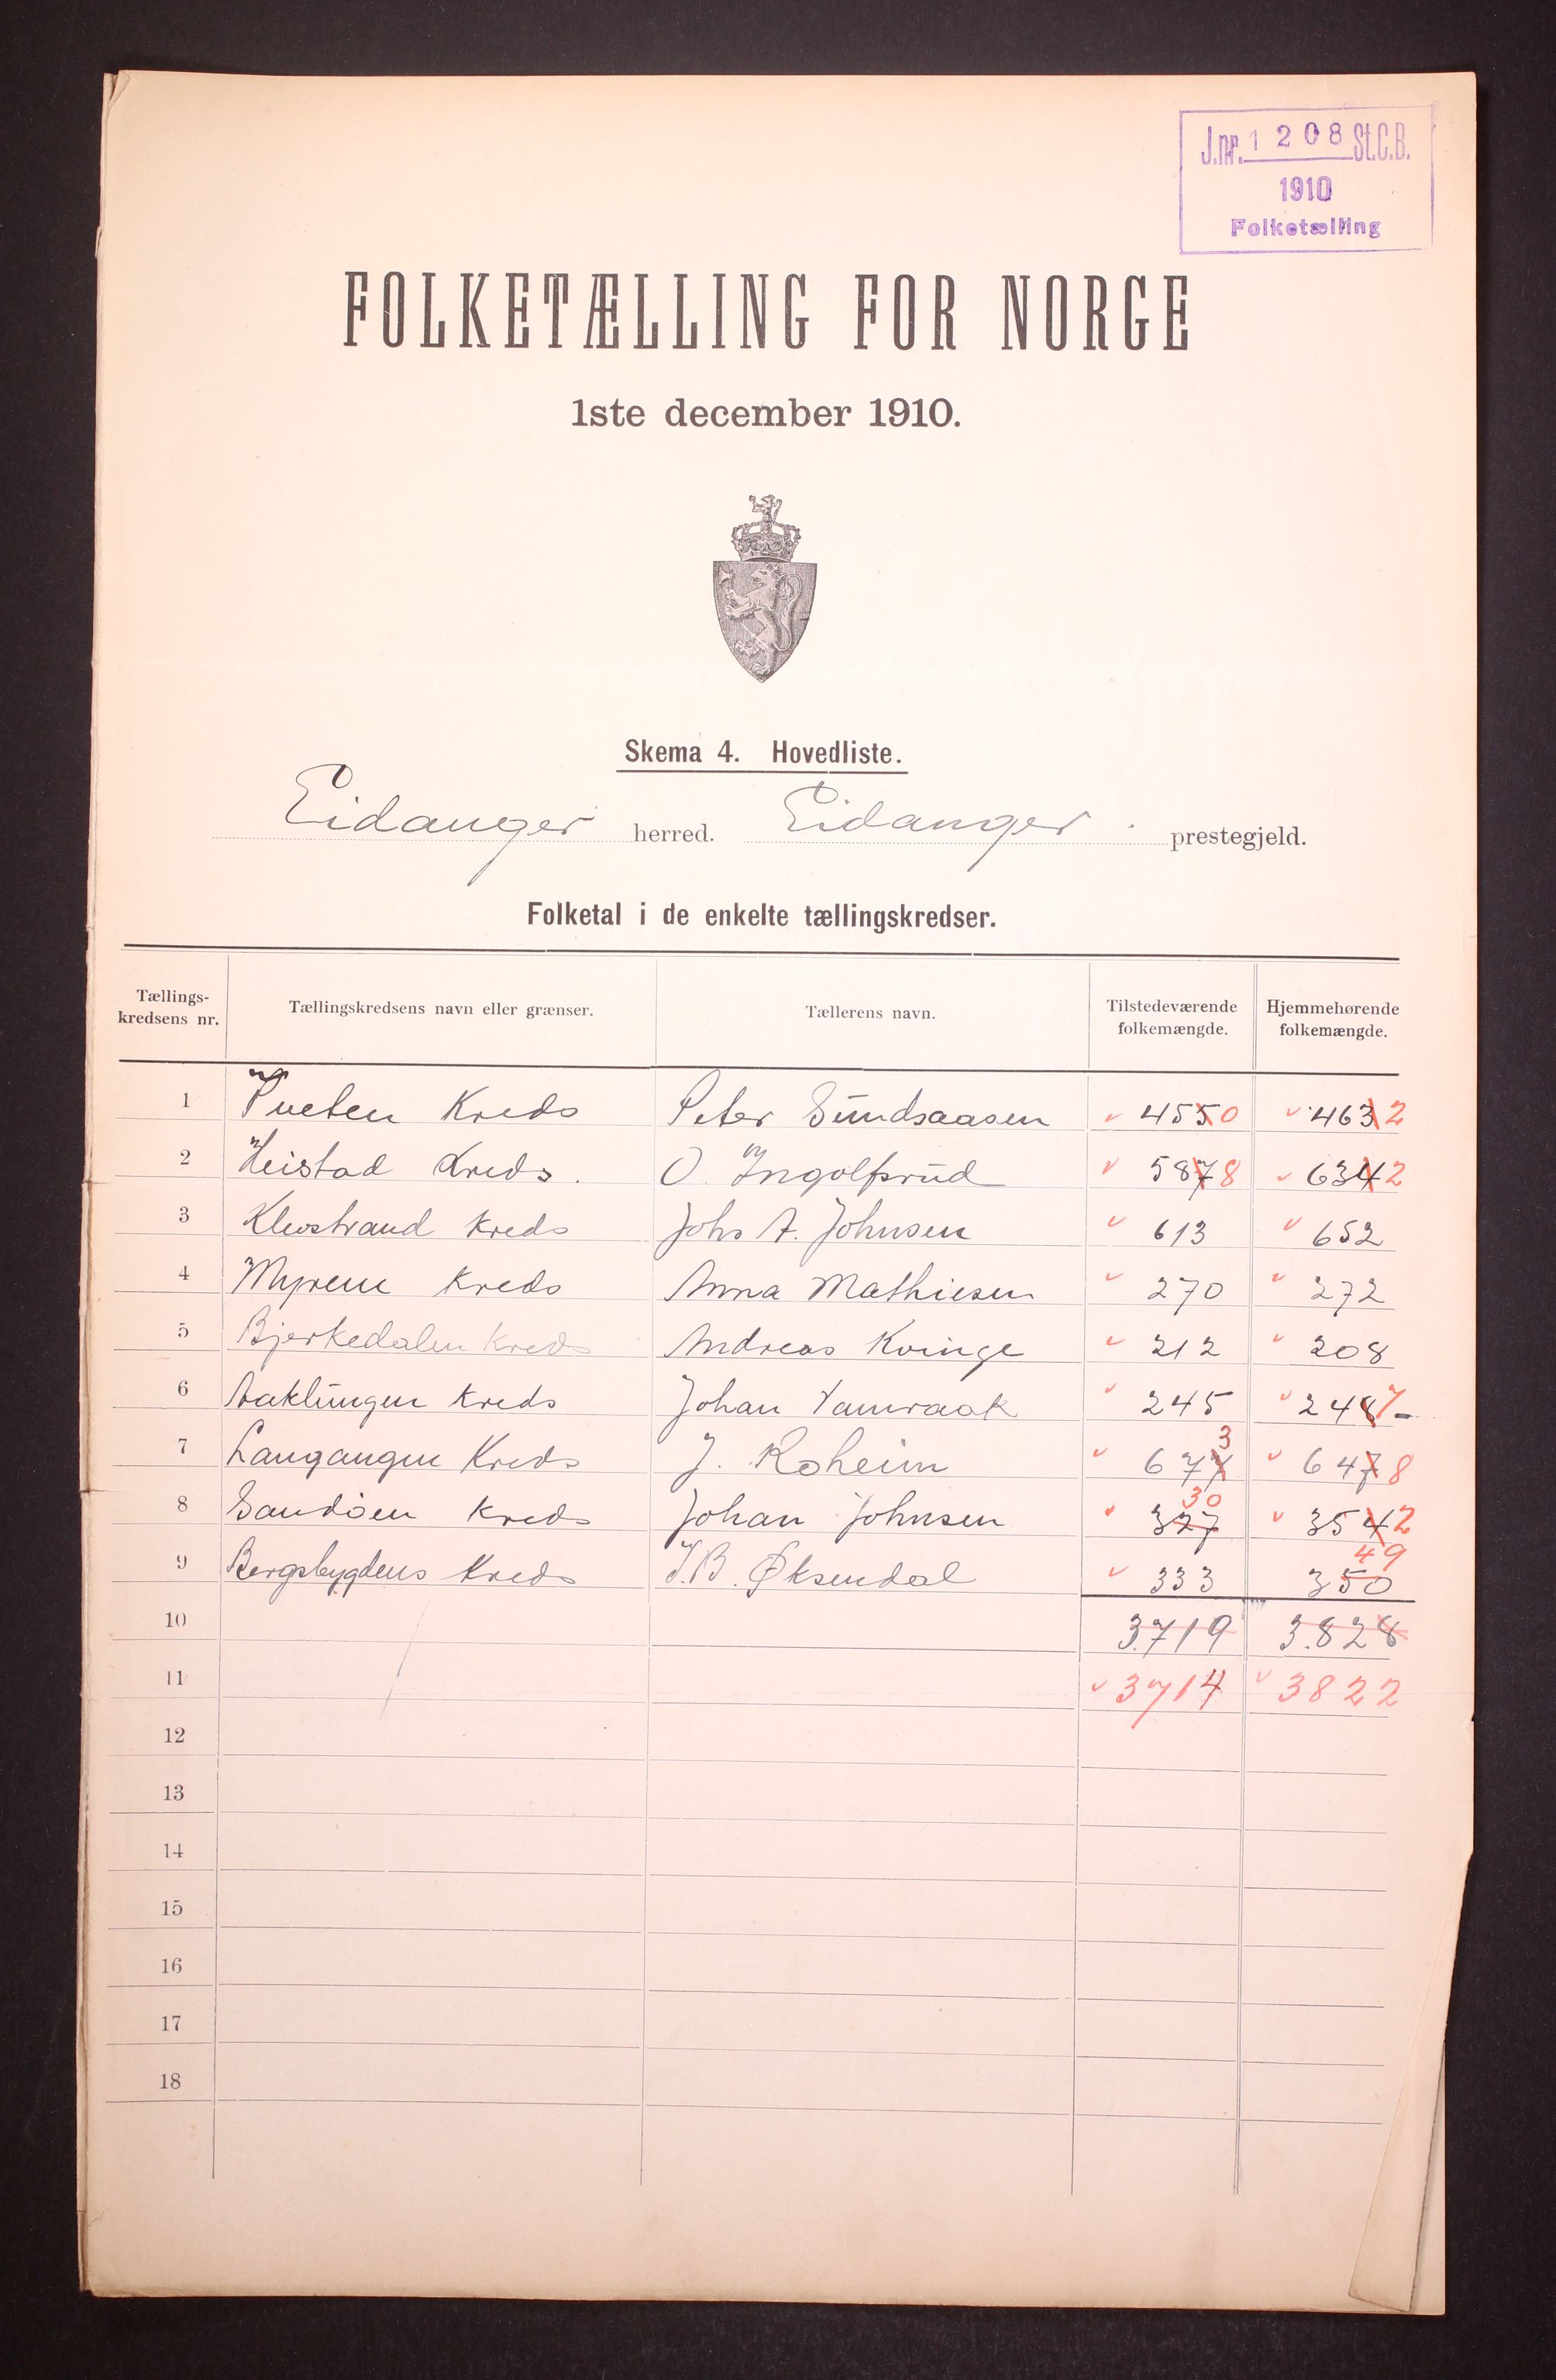 J.nr. 1208 St.C.B.
1910
Folketælling
FOLKETÆLLING FOR NORGE
1ste december 1910.
Skema 4. Hovedliste.
Eidanger herred. Eidanger prestegjeld.
Folketal i de enkelte tællingskredser.
Tællings-kredsens nr. Tællingskredsens navn eller grænser. Tællerens navn. Tilstedeværende folkemængde. Hjemmehørende folkemængde.
1 Tveten Kreds Peter Sundsaasen 455 0 463 2
2 Heistad Kreds. O. Ingolfsrud 587 8 634 2
3 Klevstrand Kreds Johs A. Johnsen 613 652
4 Myrene Kreds Anna Mathiesen 270 272
5 Bjerkedalen Kreds Andreas Kvinge 212 208
6 Aaklungen Kreds Johan Tamraak 245 248 7
7 Langangen Kreds J. Roheim 677 3 647 8
8 Sandöen Kreds Johan Johnsen 327 30 354 2
9 Bergsbygdens Kreds J.B. Øksendal 333 350 49
10 3.719 3.828
11 3714 3822
12
13
14
15
16
17
18